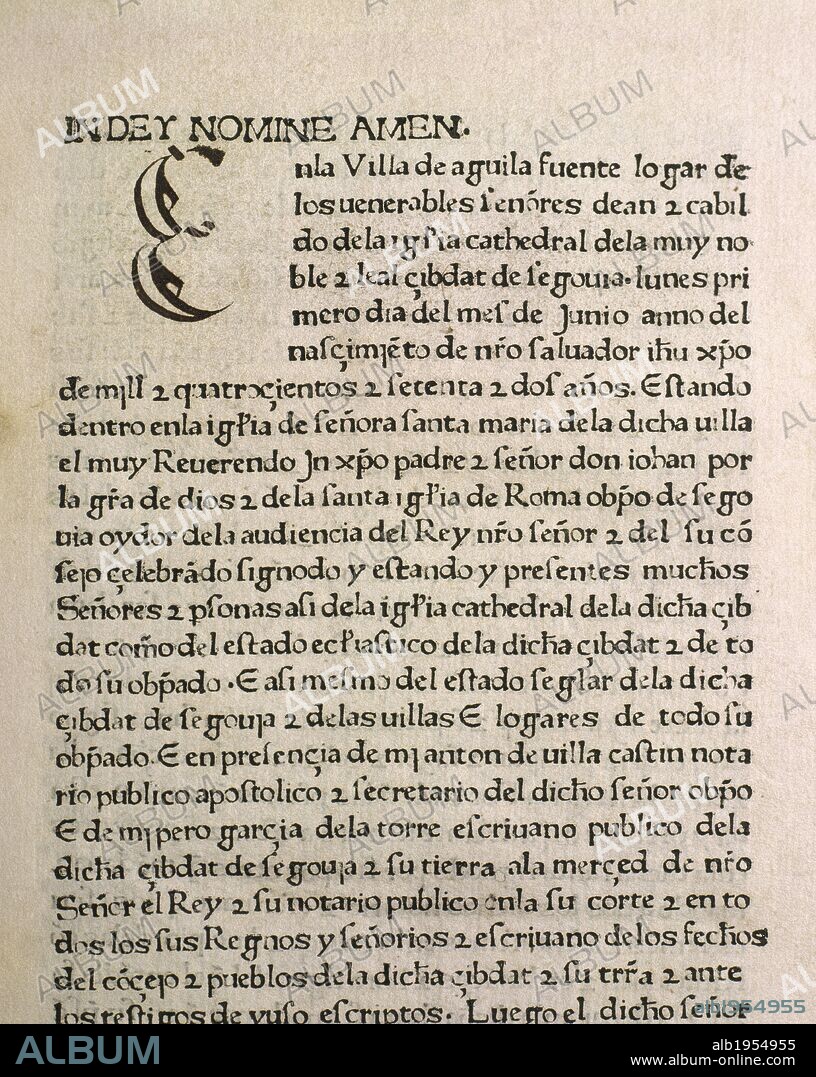 IN DEY NOMINE AMEN.
Enla Villa de aguila fuente logar de
los uenerables ſenõres dean ꝛ cabil
do dela igłia cathedral dela muy no
ble ꝛ leal çibdat de ſegouia. lunes pri
mero dia del meſ de Junio anno del
naſçimjẽto de nr̃o ſaluador ihũ xp̃o
de mjll ꝛ quatroçientos ꝛ ſetenta ꝛ doſ años. Eſtando
dentro enla igłia de ſeñora ſanta maria dela dicha uilla
el muy Reuerendo Jn xp̃o padre ꝛ ſeñor don iohan por
la gr̃a de dios ꝛ dela ſanta igłia de Roma obp̃o de ſego
uia oydor dela audiencia del Rey nr̃o ſeñor ꝛ del ſu cõ
ſejo çelebrãdo ſignodo y eſtando y preſentes muchos
Señores ꝛ pſonas aſi dela igłia cathedral dela dicħa çib
dat com̃o del eſtado ecłiaſtico dela dicħa çibdat ꝛ de to
do ſu obp̃ado . E aſi meſmo del eſtado ſeglar dela dicha
çibdat de ſegouja ꝛ delas uillas E logares de todo ſu
obp̃ado. E en preſençia de mj anton de uilla caſtin nota
rio publico apoſtolico ꝛ ſecretario del dicħo ſeñor obp̃o
E de mj pero garçia dela torre eſcriuano publico dela
dicħa çibdat de ſegouja ꝛ ſu tierra ala merçed de nr̃o
Señor el Rey ꝛ ſu notario publico enla ſu corte ꝛ en to
dos los ſus Regnos y ſeñorios ꝛ eſcrjuano delos fecħos
del cõçejo ꝛ pueblos dela dicħa çibdat ꝛ ſu trr̃a ꝛ ante
los teſtigos de yuſo eſcriptos. Luego el dicħo ſeñor
ALBUM
alb1954955
alb1954955
www.album-online.com